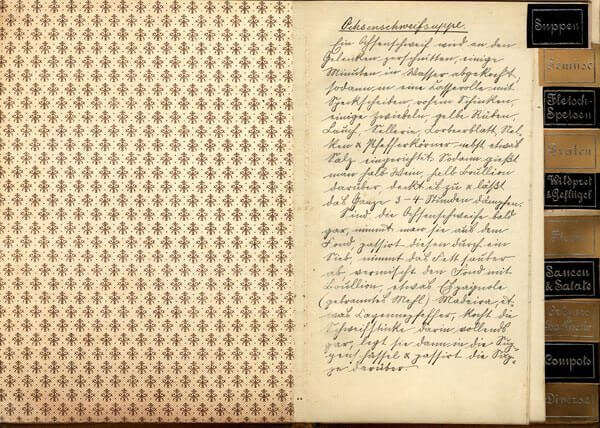 Ochsenschweifsuppe.
Ein Ochsenschweif wird an den
Gelenken zerschnitten, einige
Minuten in Wasser abgekocht,
sodann in eine Casserolle mit
Speckscheiben, rohem Schinken,
einige Zwiebeln, gelbe Rüben,
Lauch, Sellerie, Lorbeerblatt, Nel-
ken & Pfefferkörner nebst etwas
Salz eingerichtet. Sodann gießt
man halb Wein, halb Bouillon
darüber, deckt es zu & läßt
das Ganze 3-4 Stunden dämpfen.
Sind die Ochsenschweife bald
gar, nimmt man sie aus dem
Fond, passirt diesen durch ein
Sieb, nimmt das Fett sauber
ab, vermischt den Fond mit
Bouillon, etwas Espagnole
(gebranntes Mehl) Madeira, et-
was Cayennepfeffer, kocht die
Schweifstücke darin vollends
gar, legt sie dann in die Sup-
penschüssel & passirt die Sup-
pe darüber.
Suppen
Gemüse
Fleisch-
Speisen
Braten
Wildpret
& Geflügel
Saucen
& Salate
Compots
Diverse